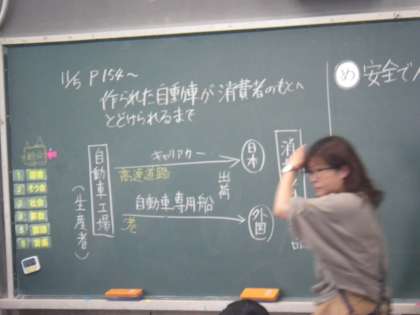 11/5 P154〜
作られた自動車が消費者のもとへ
とどけられるまで
め 安全で
キャリアカー
日本
高速道路
自動車工場
(生産者)
出荷
消
自動車専用船
外国
港
1
2
3
4
5
6